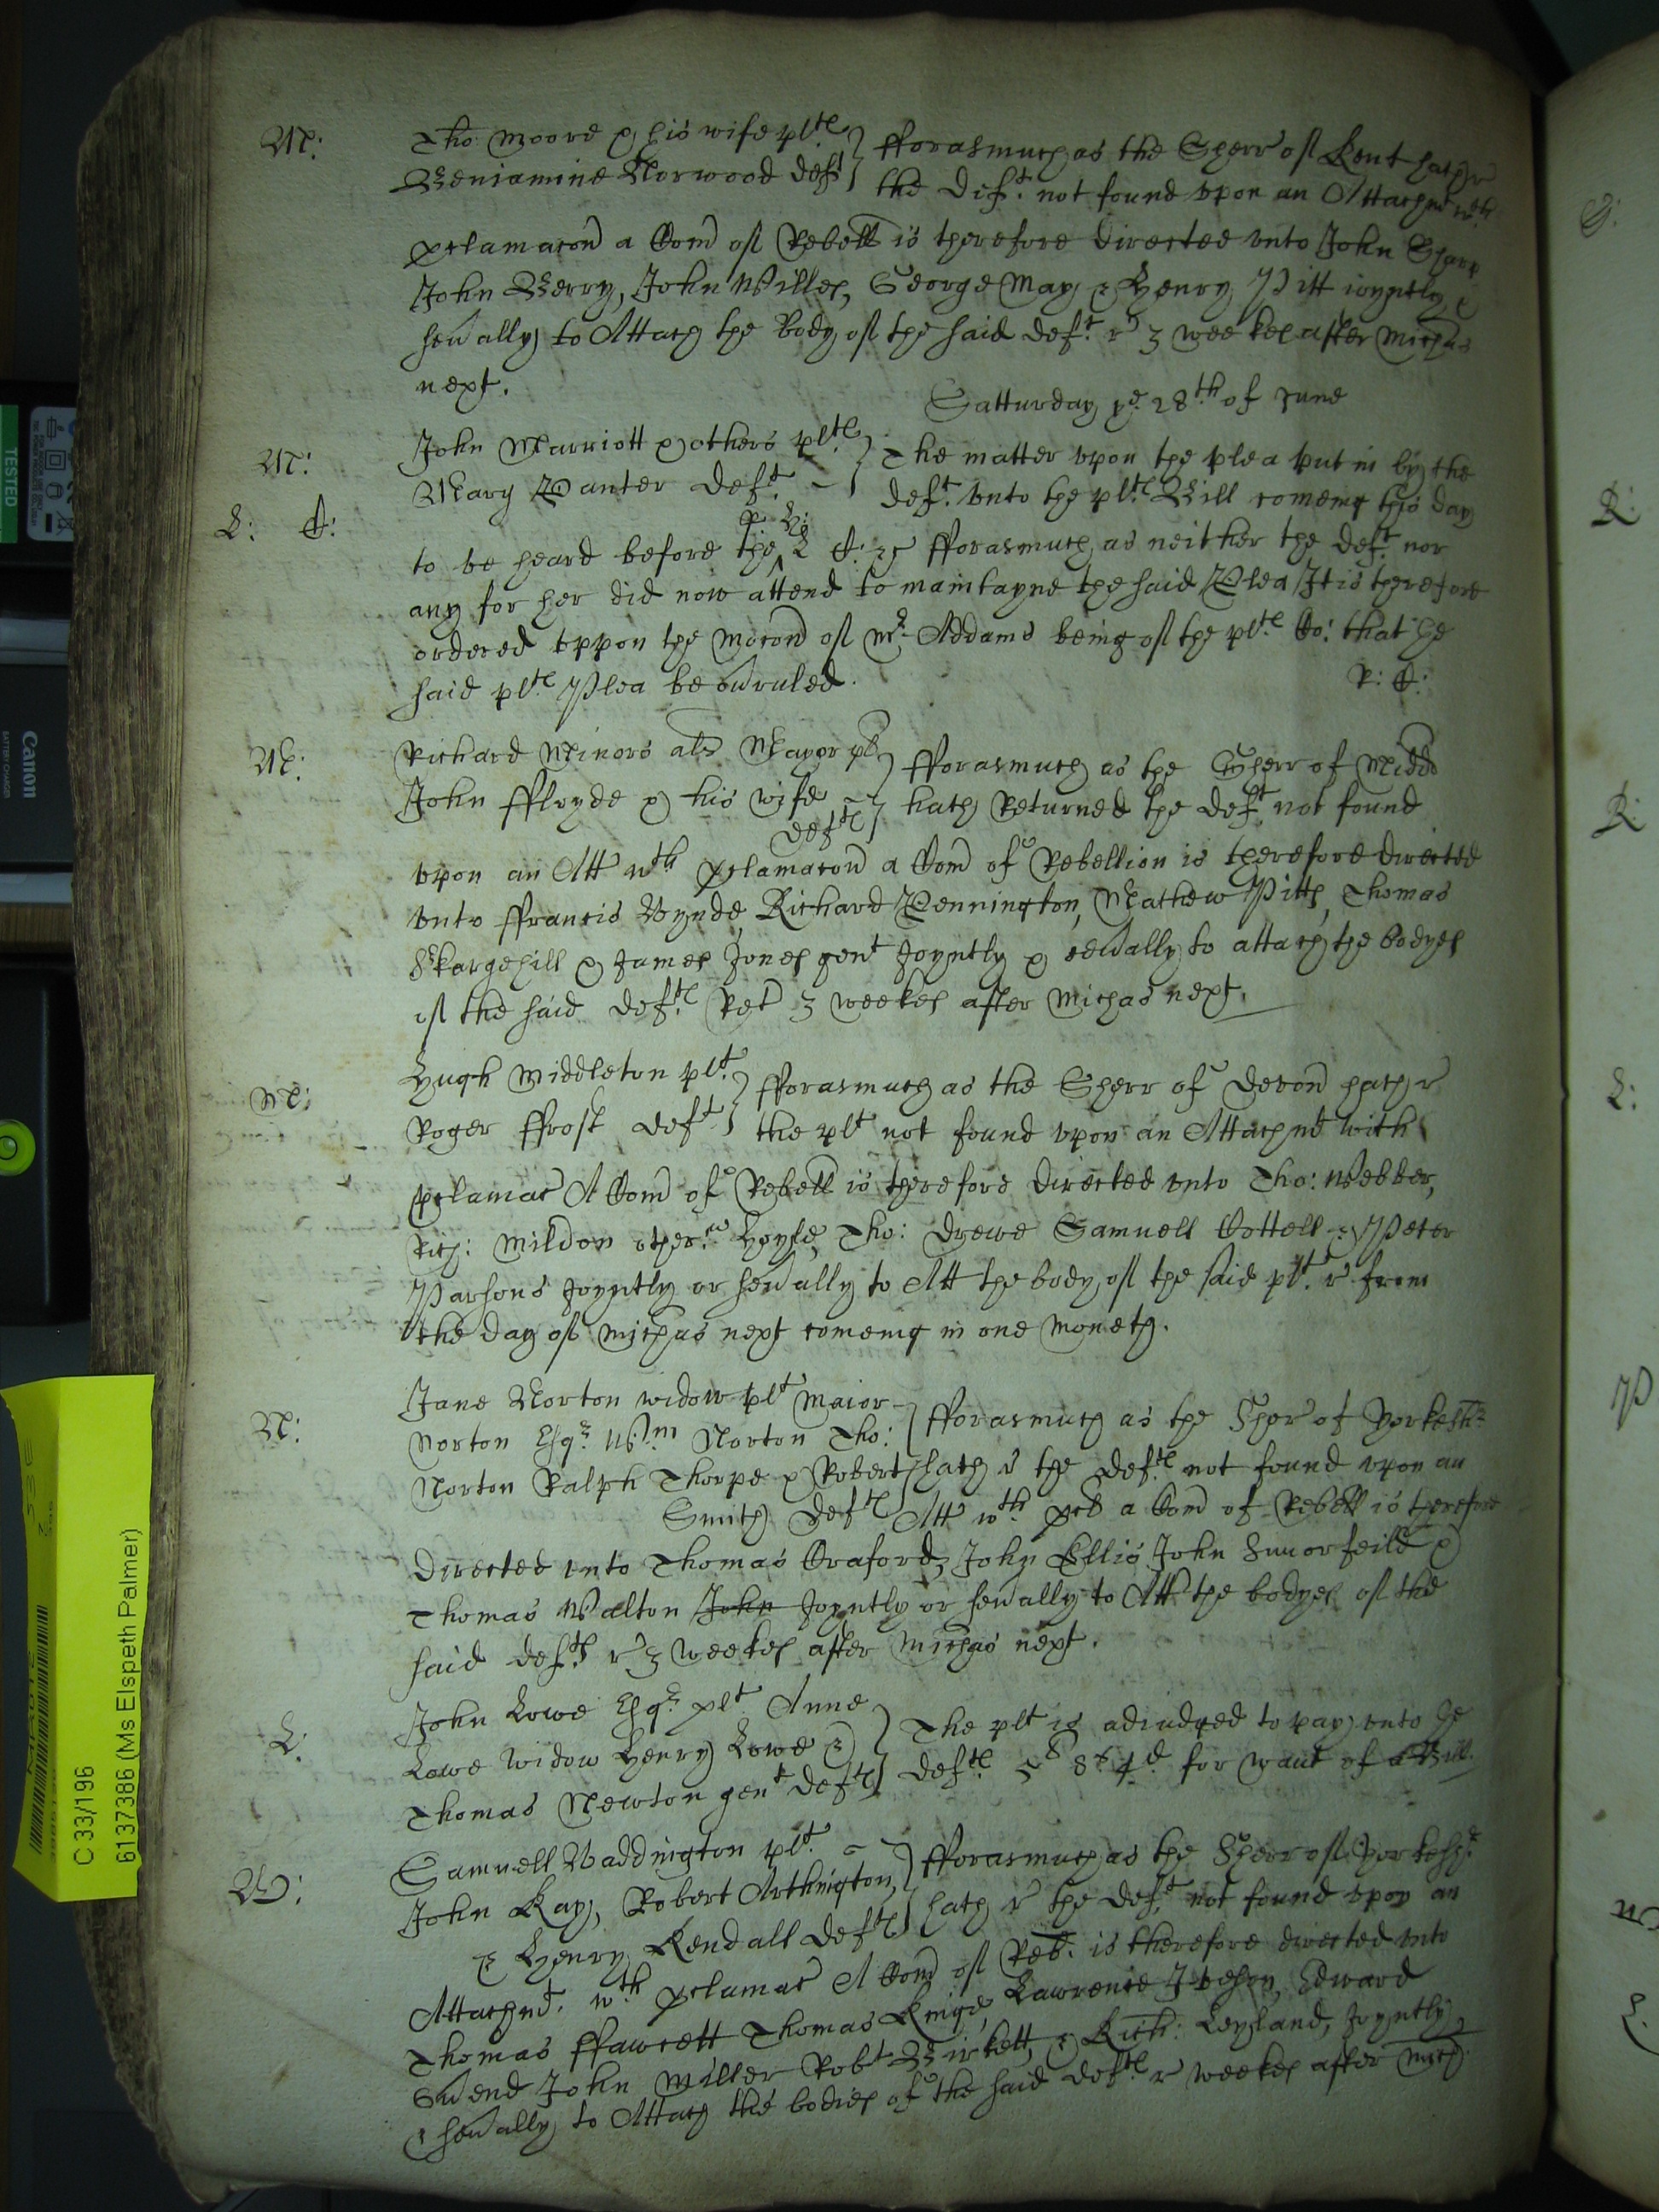 M:
Tho: Moore & his wife plts
Beniamine Norwood deft
fforasmuch as the Sherr of Kent hath r
the Deft. not found vpon an Attachmt wth
proclamacon a Com of Rebell is therefore directed vnto John Sharp
John Berry, John Willes, George May & Henry Pitt ioyntly &
seually to Attach the Body of the said deft. r 3 weekes after Michas
next.
Satturday ye 28th of June
M:
John Marriott & others plts
Mary Panter Deft.
The matter vpon the plea put in by the
deft. vnto the plts Bill comeing this day
L: C:
to be heard before the L C: & fforasmuch as neither the deft. nor
any for her did now attend to maintayne the said Plea It is therefore
ordered vppon the mocon of Mr. Addams being of the plts Co: that the
said plts Plea be ouruled.
R: C:
M:
Richard Minors als Mayor plt
John ffloyde & his wife
defts
fforasmuch as the Sherr of Midd
hath Returned the deft. not found
vpon an Att wth proclamacon a Com of Rebellion is therefore directed
vnto ffrancis Wynde, Richard Pennington, Mathew Pitts, Thomas
Skargehill & James Jones gent Joyntly & seually to attach the bodyes
of the said defts Ret 3 weekes after Michas next.
M:
Hugh Middleton plt.
Roger ffrost deft
fforasmuch as the Sherr of Devon hath r
the plt not found vpon an Attachmt with
proclamac A Com of Rebell is therefore directed vnto Tho: Webber,
Rich: Mildon Tho: Drewe Samuell Cottell & Peter
Parsons Joyntly or seually to Att the body of the said plt. r from
the day of Michas next comeing in one moneth.
N:
Jane Norton widow plt Maior
Norton Esqr Wm Norton Tho:
Norton Ralph Thorpe & Robert
Smith defts
fforasmuch as the Sher of Yorkeshr
hath r the defts not found vpon an
Att wth procl a Com of Rebell is therefore
directed vnto Thomas Craford, John Ellis John & 
Thomas Walton John Joyntly or seually to Att the bodyes of the
said defts r 3 weekes after Michas next.
L:
John Lowe Esqr plt Anne
Lowe widow Henry Lowe &
Thomas Newton gent defts
The plt is adiudged to pay vnto the
defts 8s 4d for want of a Bill.
W:
Samuell Waddington plt.
John Kay, Robert Arthington,
& Henry Kendall defts
fforasmuch as the Sherr of Yorkeshr
hath r the deft. not found vpon an
Attachmt. wth proclamac A Com of Reb. is therefore directed vnto
Thomas ffawcett Thomas Kinge, Lawrence Edward
John Miller Robt Birkett, & Rich: Leyland, Joyntly
& seually to Attach the bodies of the said defts r weekes after Mich
TESTED
Canon
BATTERY CHARGER
C 33/1196
6137386 (Ms Elspeth Palmer)